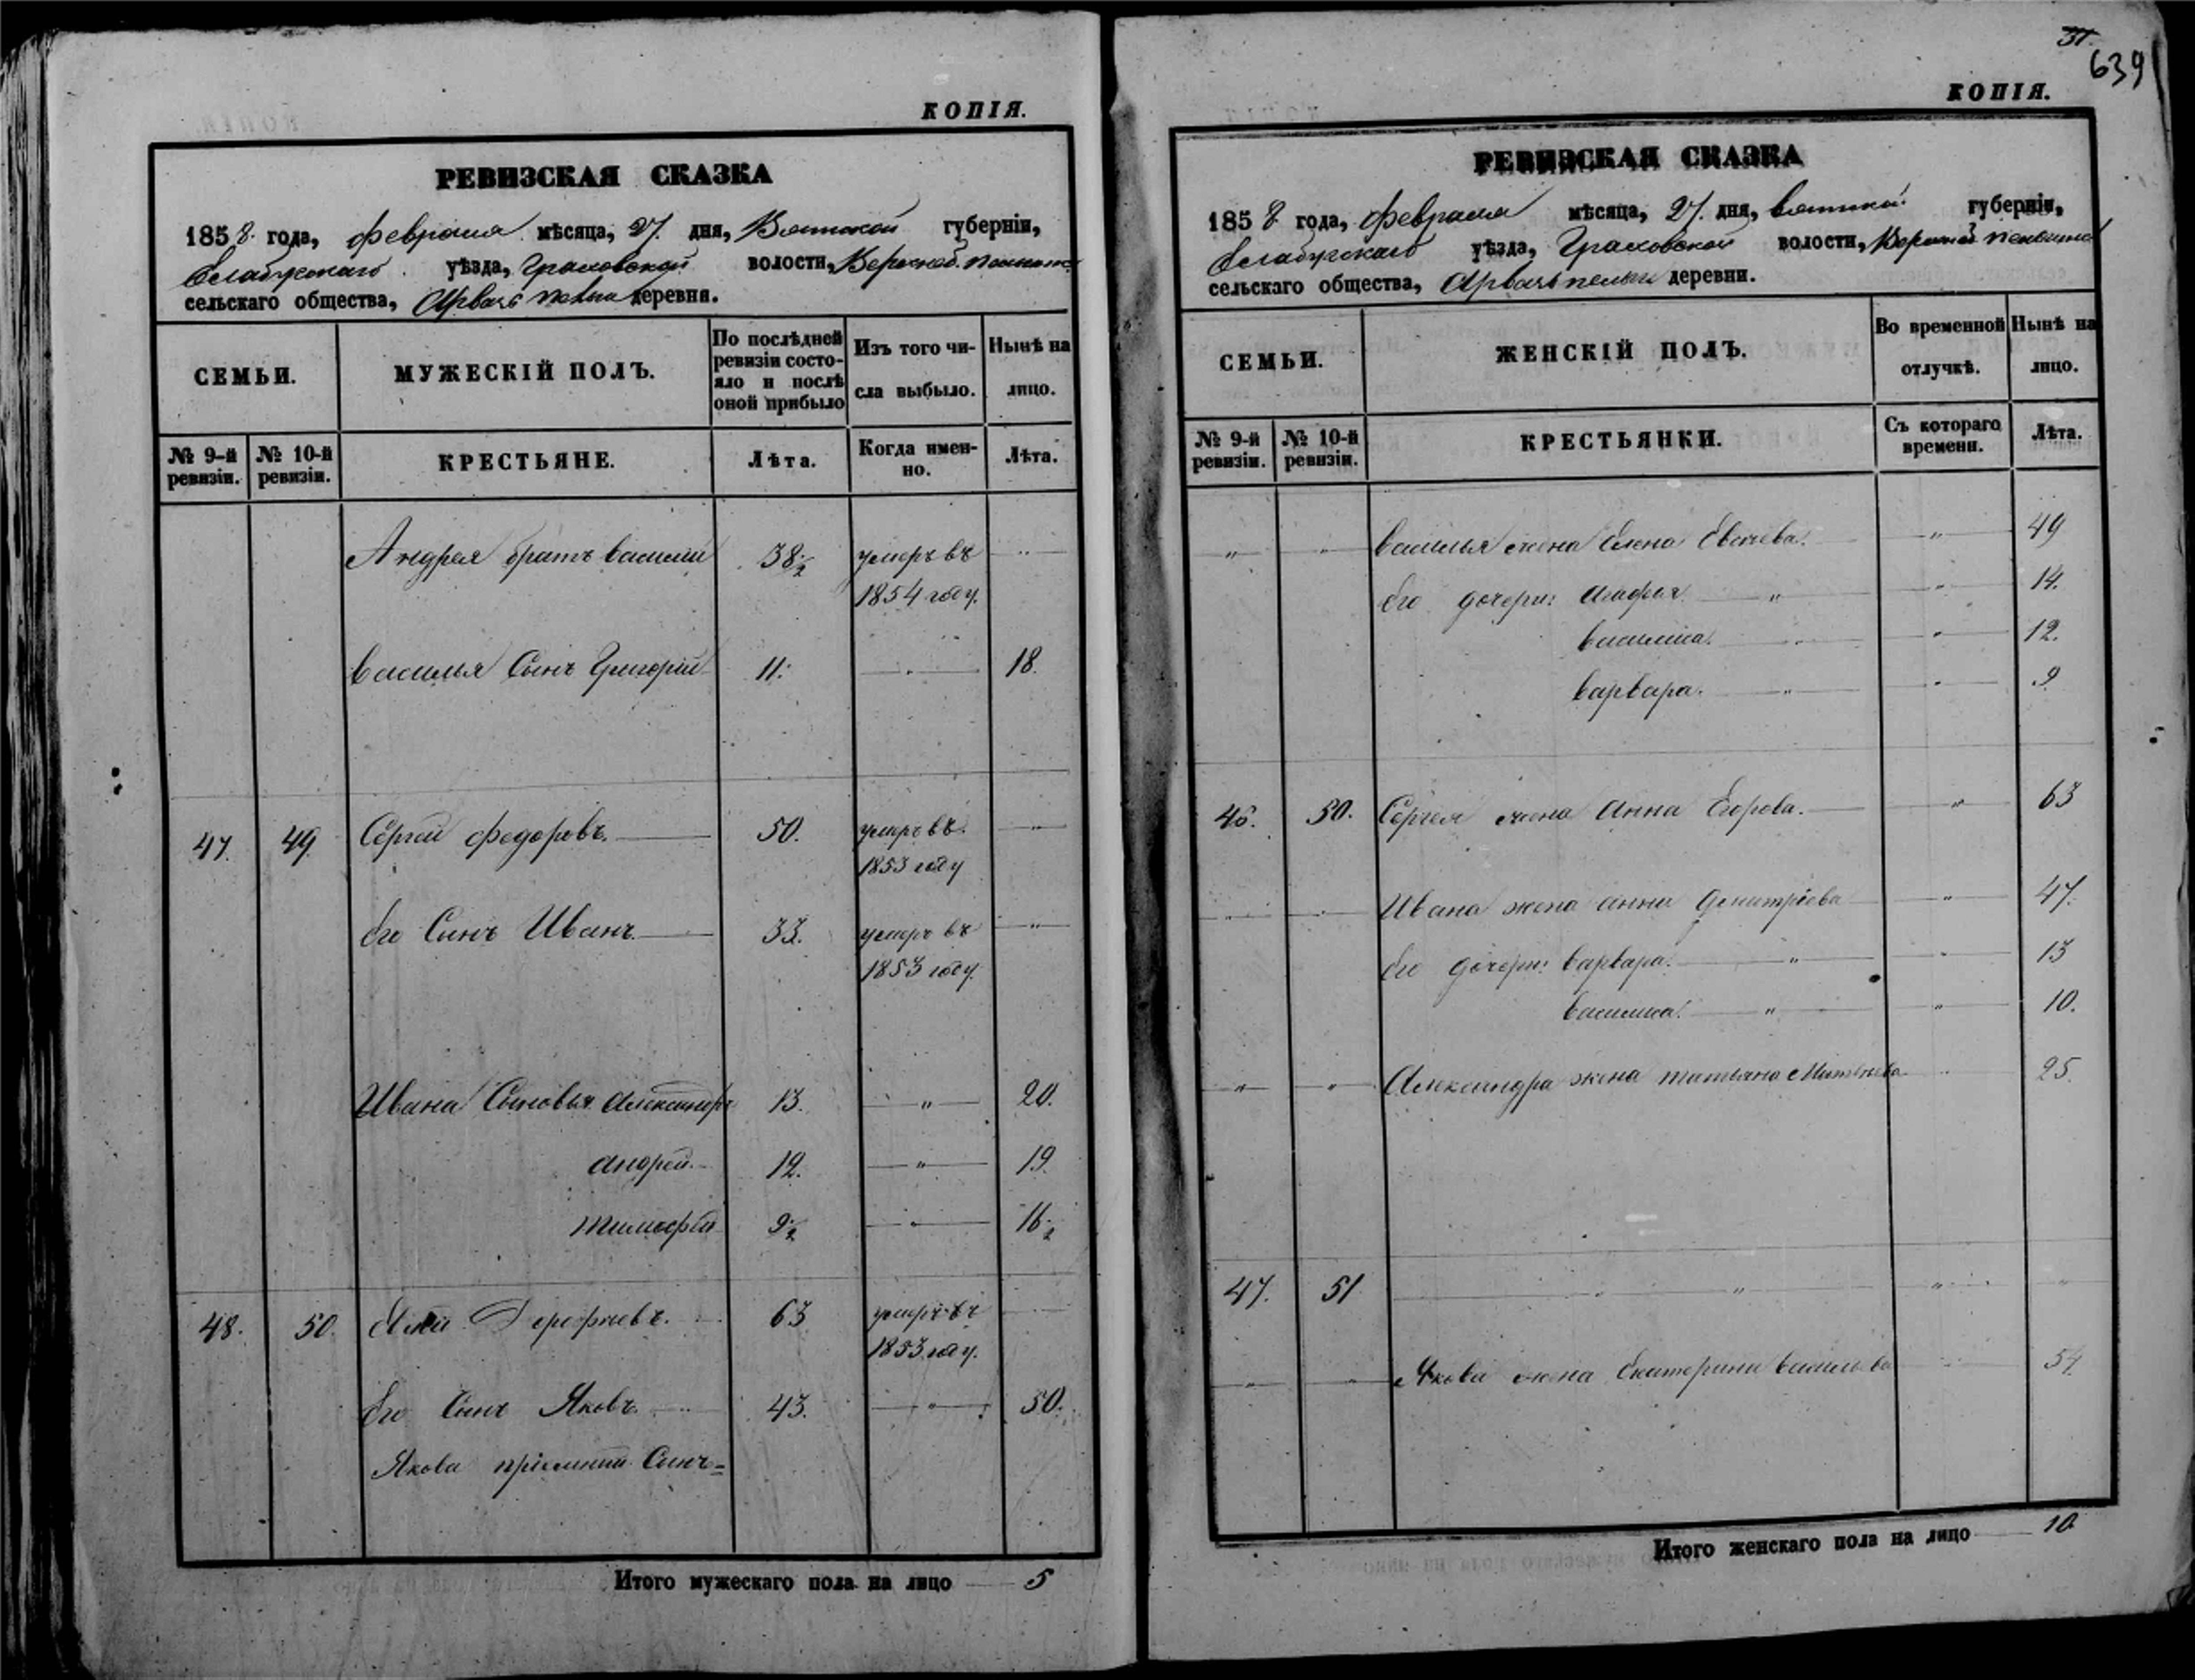 КОПІЯ.
РЕВИЗСКАЯ СКАЗКА
1858. года, февраля мѣсяца, 27. дня, Вятской губерніи,
Елабужскаго уѣзда, Граховской волости,
сельскаго общества, Арвазь пельги деревни.
СЕМЬИ.
МУЖЕСКІЙ ПОЛЪ.
По послѣдней ревизіи состояло и послѣ оной прибыло
Изъ того числа выбыло.
Нынѣ на лицо.
№ 9-й ревизіи.
№ 10-й ревизіи.
КРЕСТЬЯНЕ.
Лѣта.
Когда именно.
Лѣта.
Андрея братъ Василій 38½ умеръ въ — " —
1854 году.
Василья Сынъ Григорій 11. — " — 18.
47. 49. Сергей Федоровъ. 50. умеръ въ — " —
1853 году
Его Сынъ Иванъ. 33. умеръ въ — " —
1853 году.
Ивана Сыновья Александръ 13. — " — 20.
Андрей. 12. — " — 19.
Тимофей 9½ — " — 16½
48. 50. 63 умеръ въ
1853 году.
Его Сынъ Яковъ. 43. — " — 50.
Якова пріемный Сынъ =
Итого мужескаго пола на лицо 5
31.
639
КОПІЯ.
РЕВИЗСКАЯ СКАЗКА
1858 года, февраля мѣсяца, 27. дня, Вятской губерніи,
Елабужскаго уѣзда, Граховской волости,
сельскаго общества, Арвазь пельги деревни.
СЕМЬИ.
ЖЕНСКІЙ ПОЛЪ.
Во временной отлучкѣ.
Нынѣ на лицо.
№ 9-й ревизіи.
№ 10-й ревизіи.
КРЕСТЬЯНКИ.
Съ котораго времени.
Лѣта.
— " — — " — Василья жена Елена — " — 49
Его дочери: Агафья — " — — " — 14.
Василиса. — " — — " — 12.
Варвара. — " — — " — 9
46. 50. Сергея жена Анна Егорова. — " — 63
— " — — " — Ивана жена Анна Дмитріева — " — 47.
Его дочери: Варвара. — " — — " — 13
Василиса. — " — — " — 10.
— " — — " — Александра жена Татьяна 25.
47. 51 — " — — " — — " — "
— " — — " — Якова жена Екатерина Васильева 54.
Итого женскаго пола на лицо 10.